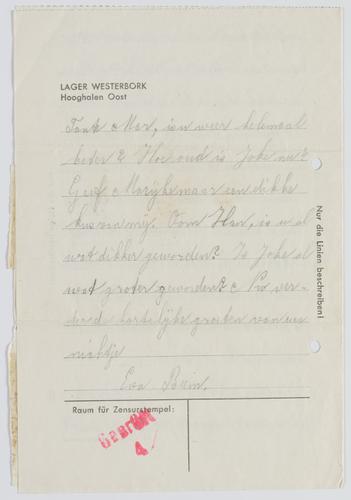 LAGER WESTERBORK
Hooghalen Oost
Tank Mar, is u weer helemaal
beter? Hoe oud is Joke nu?
Geef Marijke maar een dikke
kus van mij. Oom Han, is u al
wat dikker geworden? Is Joke al
wat groter geworden? Nu ver-
der de hartelijke groeten van uw
nichtje
Eva
Nur die Linien beschreiben!
Raum für Zensurstempel:
Geprüft
4